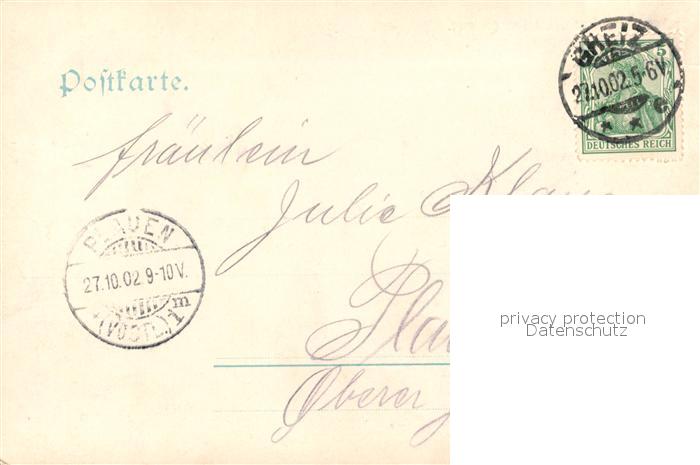 Postkarte.
GREIZ
27.10.02.5-6V.
5
DEUTSCHES REICH
Fräulein
Julie
PLAUEN
27.10.02 9-10V.
(VOGTL.) 1 m
Oberer
privacy protection
Datenschutz